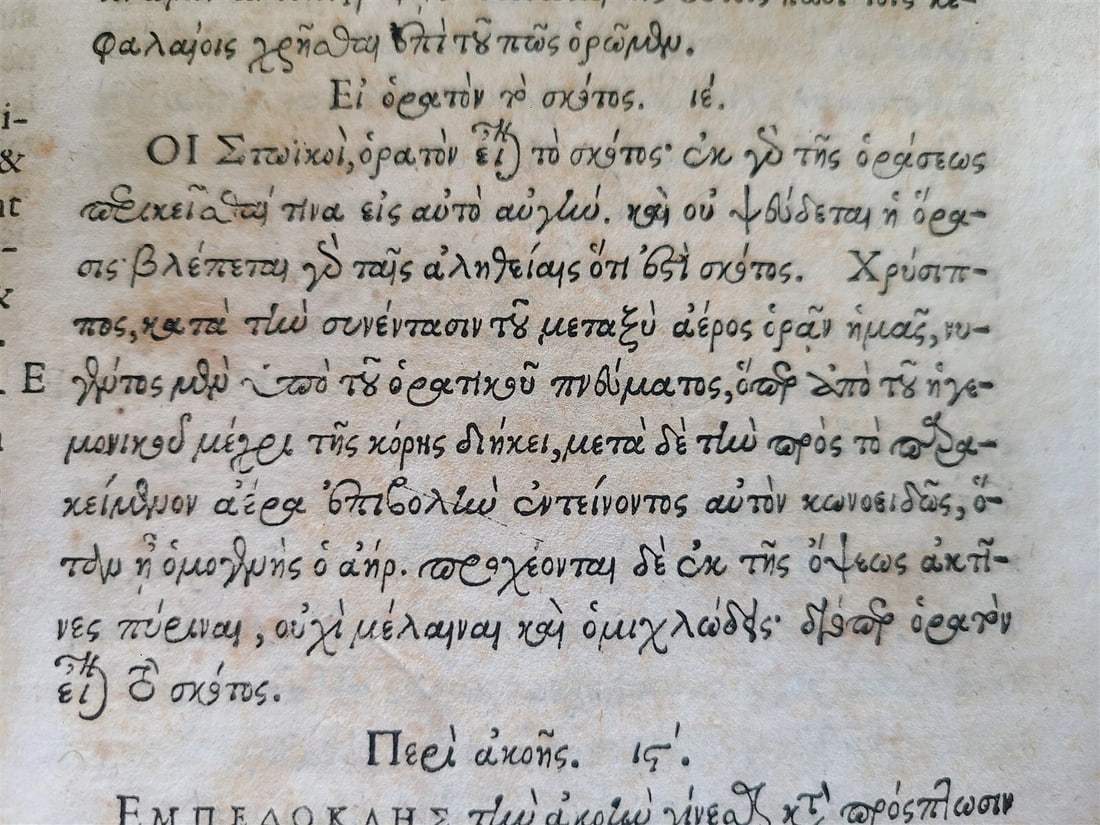 φαλαίοις χρῆσθαι ἐπὶ τοῦ πῶς ὁρῶμεν.
Εἰ ὁρατὸν τὸ σκότος. ιέ.
ΟΙ Στωϊκοὶ, ὁρατὸν εἶναι τὸ σκότος· ἐκ γὰρ τῆς ὁράσεως
i-
&
nt
περικεῖσθαί τινα εἰς αὐτὸ αὐγὴν. καὶ οὐ ψεύδεται ἡ ὅρα-
-
σις· βλέπεται γὰρ ταῖς ἀληθείαις ὅτι ἐστὶ σκότος. Χρύσιπ-
πος, κατὰ τὴν συνέντασιν τοῦ μεταξὺ ἀέρος ὁρᾷν ἡμᾶς, νυ-
E γέντος μὲν ὑπὸ τοῦ ὁρατικοῦ πνεύματος, ὅπερ ἀπὸ τοῦ ἡγε-
μονικοῦ μέχρι τῆς κόρης διήκει, μετὰ δὲ τὴν πρὸς τὸ παρα-
κείμενον ἀέρα ἐπιβολὴν ἐντείνοντος αὐτὸν κωνοειδῶς, ὅ-
ταν ᾖ ὁμογενὴς ὁ ἀήρ. προχέονται δὲ ἐκ τῆς ὄψεως ἀκτῖ-
νες πύριναι, οὐχὶ μέλαιναι καὶ ὁμιχλώδεις· διόπερ ὁρατὸν
εἶναι τὸ σκότος.
Περὶ ἀκοῆς. ις΄.
ΕΜΠΕΔΟΚΛΗΣ τὴν ἀκοὴν γίνεσθαι κατὰ πρόσπτωσιν